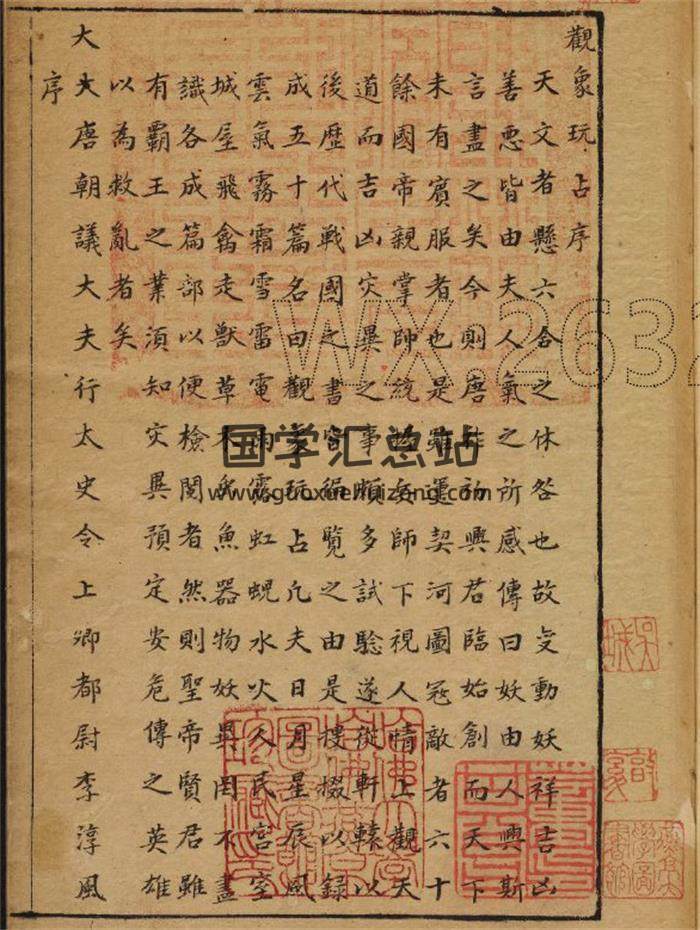 觀象玩占序
天文者懸六合之休咎也故变動妖祥吉凶
善悪皆由夫人氣之所感傳曰妖由人興斯
言盡之矣今則唐祚初興君臨始創而天下
未有賓服者也是雖運契河圖冦敵者六十
餘國帝親掌師統師下視人情上觀天
道而吉凶灾異之事頗多試驗遂從軒轅以
後歷代戰國之書皆得覽之由是摟掇以録
成五十篇名曰觀象玩占凢夫日月星辰風
雲氣霧霜雪雷電雨雹虹蜺水火人民宮室
城屋飛禽走獸草木魚器物妖異罔不盡
識各成篇部以便檢閱者然則聖帝賢君雖
有霸王之業須知灾異預定安危傳之英雄
以為救亂者矣
大大唐朝議大夫行太史令上卿都尉李淳風
序
国学汇总站
www.guoxuehuizong.com
WX:2632